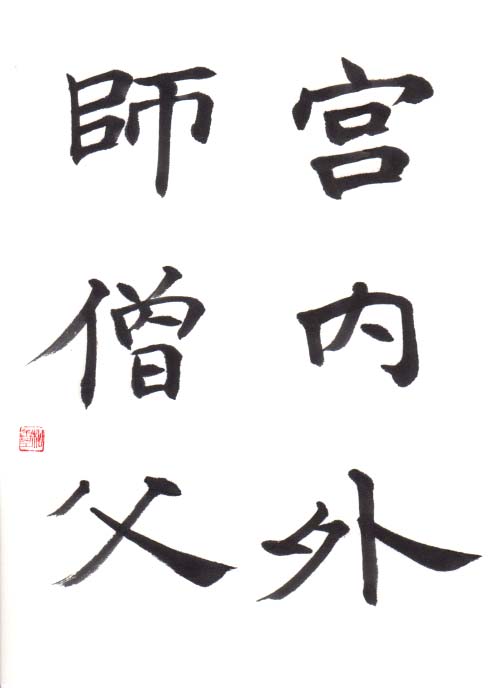 宮内外
師僧父